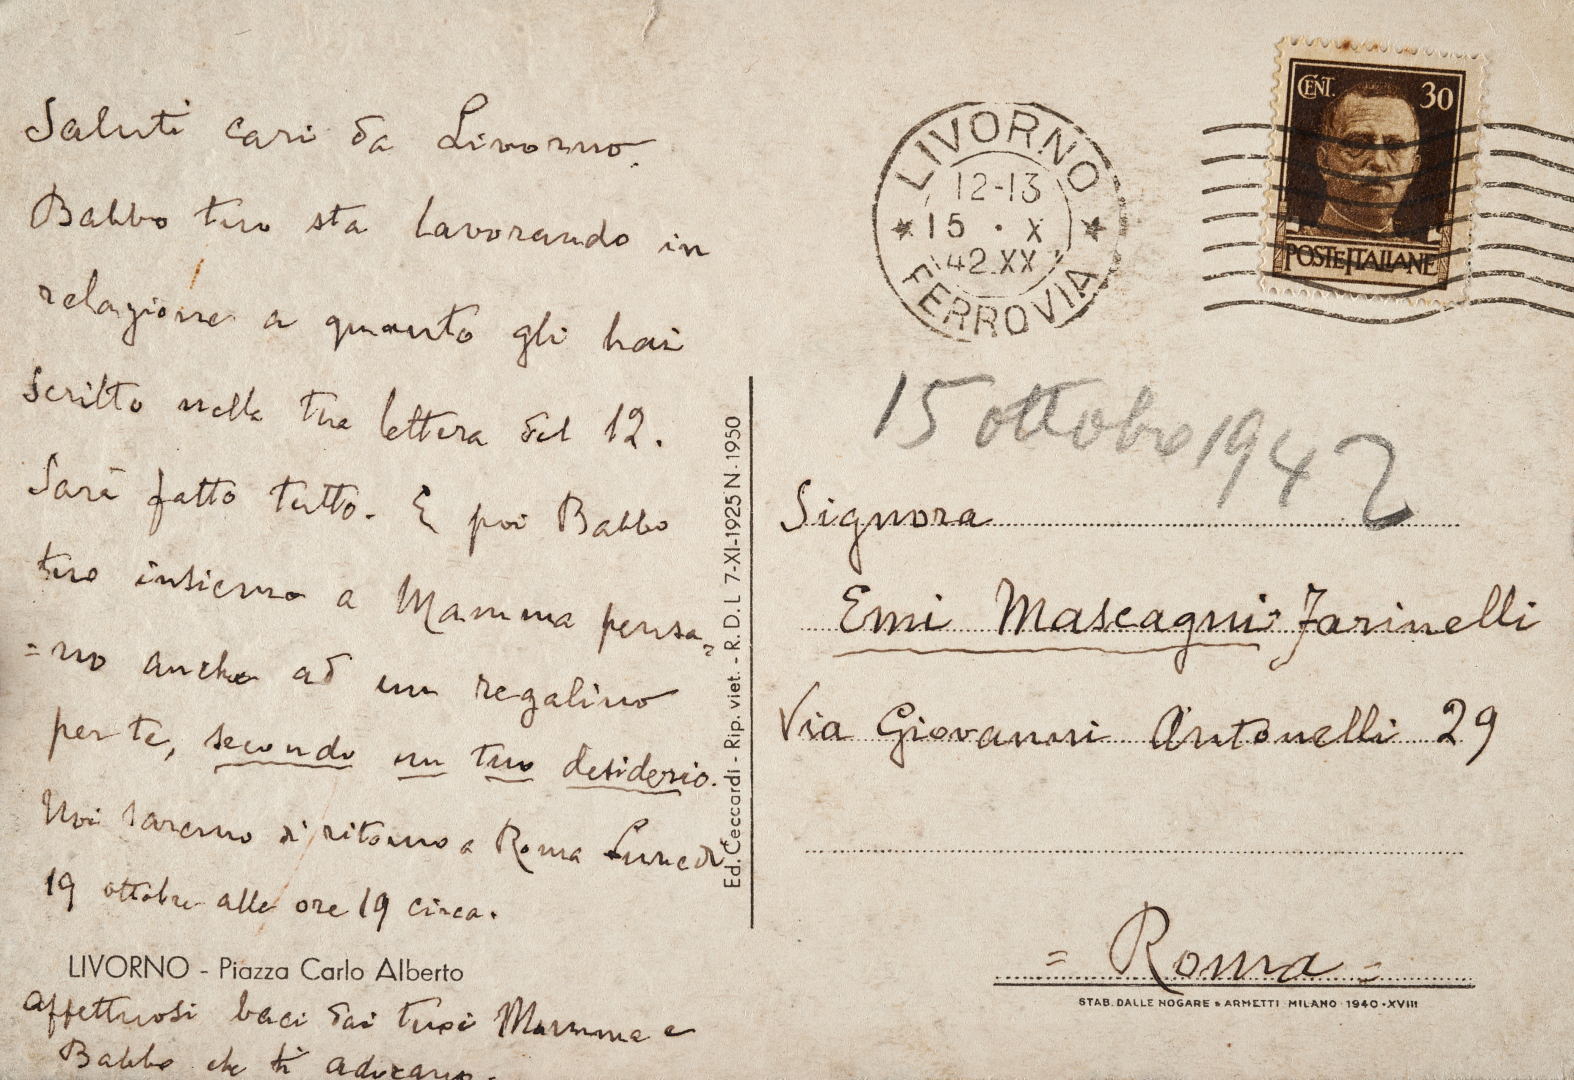 Saluti cari da Livorno.
Babbo tuo sta lavorando in
relazione a quanto gli hai
scritto nella tua lettera del 12.
Sarà fatto tutto. E poi Babbo
tuo insieme a Mamma pensa=
=no anche ad un regalino
per te, secondo un tuo desiderio.
Noi saremo di ritorno a Roma Lunedì
19 ottobre alle ore 19 circa.
LIVORNO - Piazza Carlo Alberto
affettuosi baci dai tuoi Mamma e
Babbo che ti adorano.
Ed. Ceccardi - Rip. viet. - R. D. L 7-XI-1925 N-1950
LIVORNO
12-13
15 · X
42 XX
FERROVIA
CENT. 30
POSTE ITALIANE
15 ottobre 1942
Signora
Emi Mascagni-Farinelli
Via Giovanni Antonelli 29
= Roma =
STAB. DALLE NOGARE e ARMETTI MILANO · 1940 · XVIII